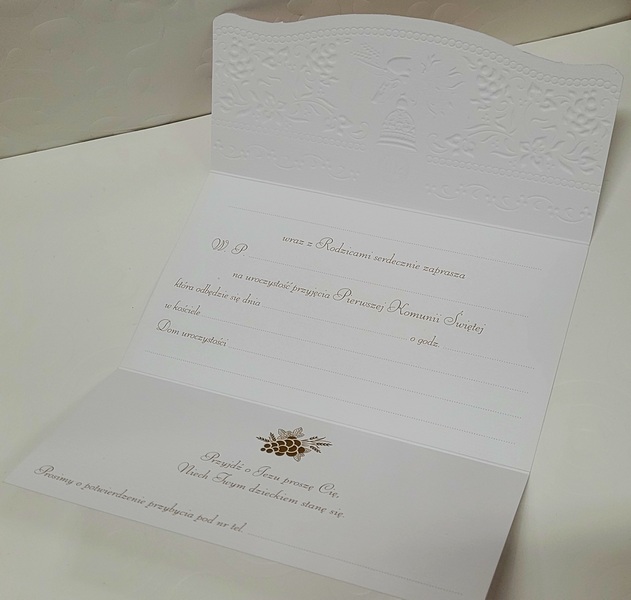 wraz z Rodzicami serdecznie zaprasza
W. P.
na uroczystość przyjęcia Pierwszej Komunii Świętej
która odbędzie się dnia
w kościele o godz.
Dom uroczystości
Przyjdź o Jezu proszę Cię,
Niech Twym dzieckiem stanę się.
Prosimy o potwierdzenie przybycia pod nr tel.